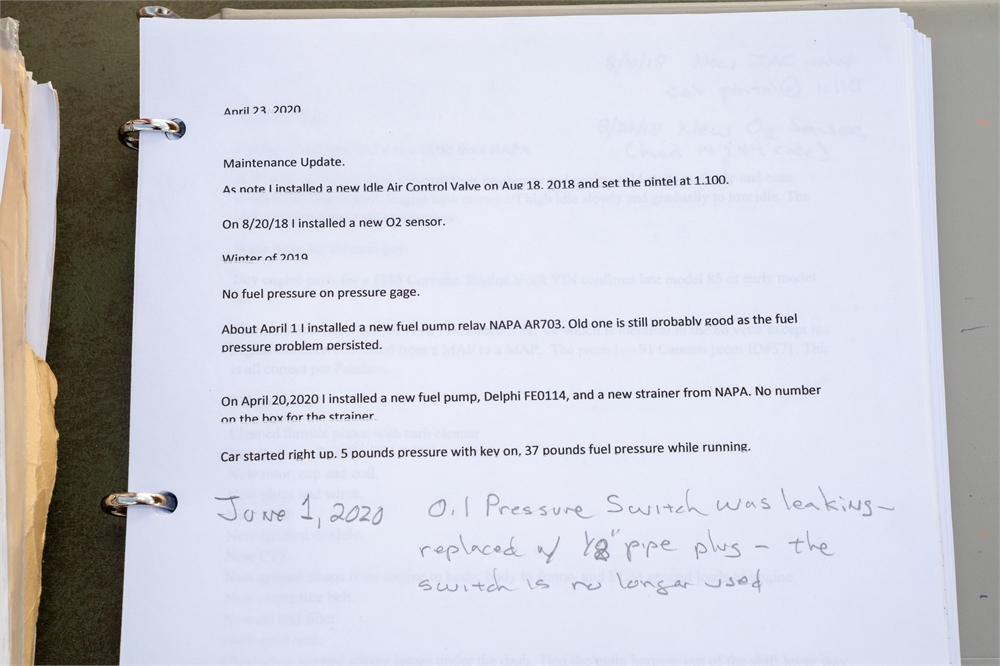 April 23, 2020
Maintenance Update.
As note I installed a new Idle Air Control Valve on Aug 18, 2018 and set the pintel at 1.100.
On 8/20/18 I installed a new O2 sensor.
Winter of 2019
No fuel pressure on pressure gage.
About April 1 I installed a new fuel pump relay NAPA AR703. Old one is still probably good as the fuel
pressure problem persisted.
On April 20,2020 I installed a new fuel pump, Delphi FE0114, and a new strainer from NAPA. No number
on the box for the strainer.
Car started right up. 5 pounds pressure with key on, 37 pounds fuel pressure while running.
June 1, 2020 Oil Pressure Switch was leaking -
replaced w/ 1/8" pipe plug - the
switch is no longer used